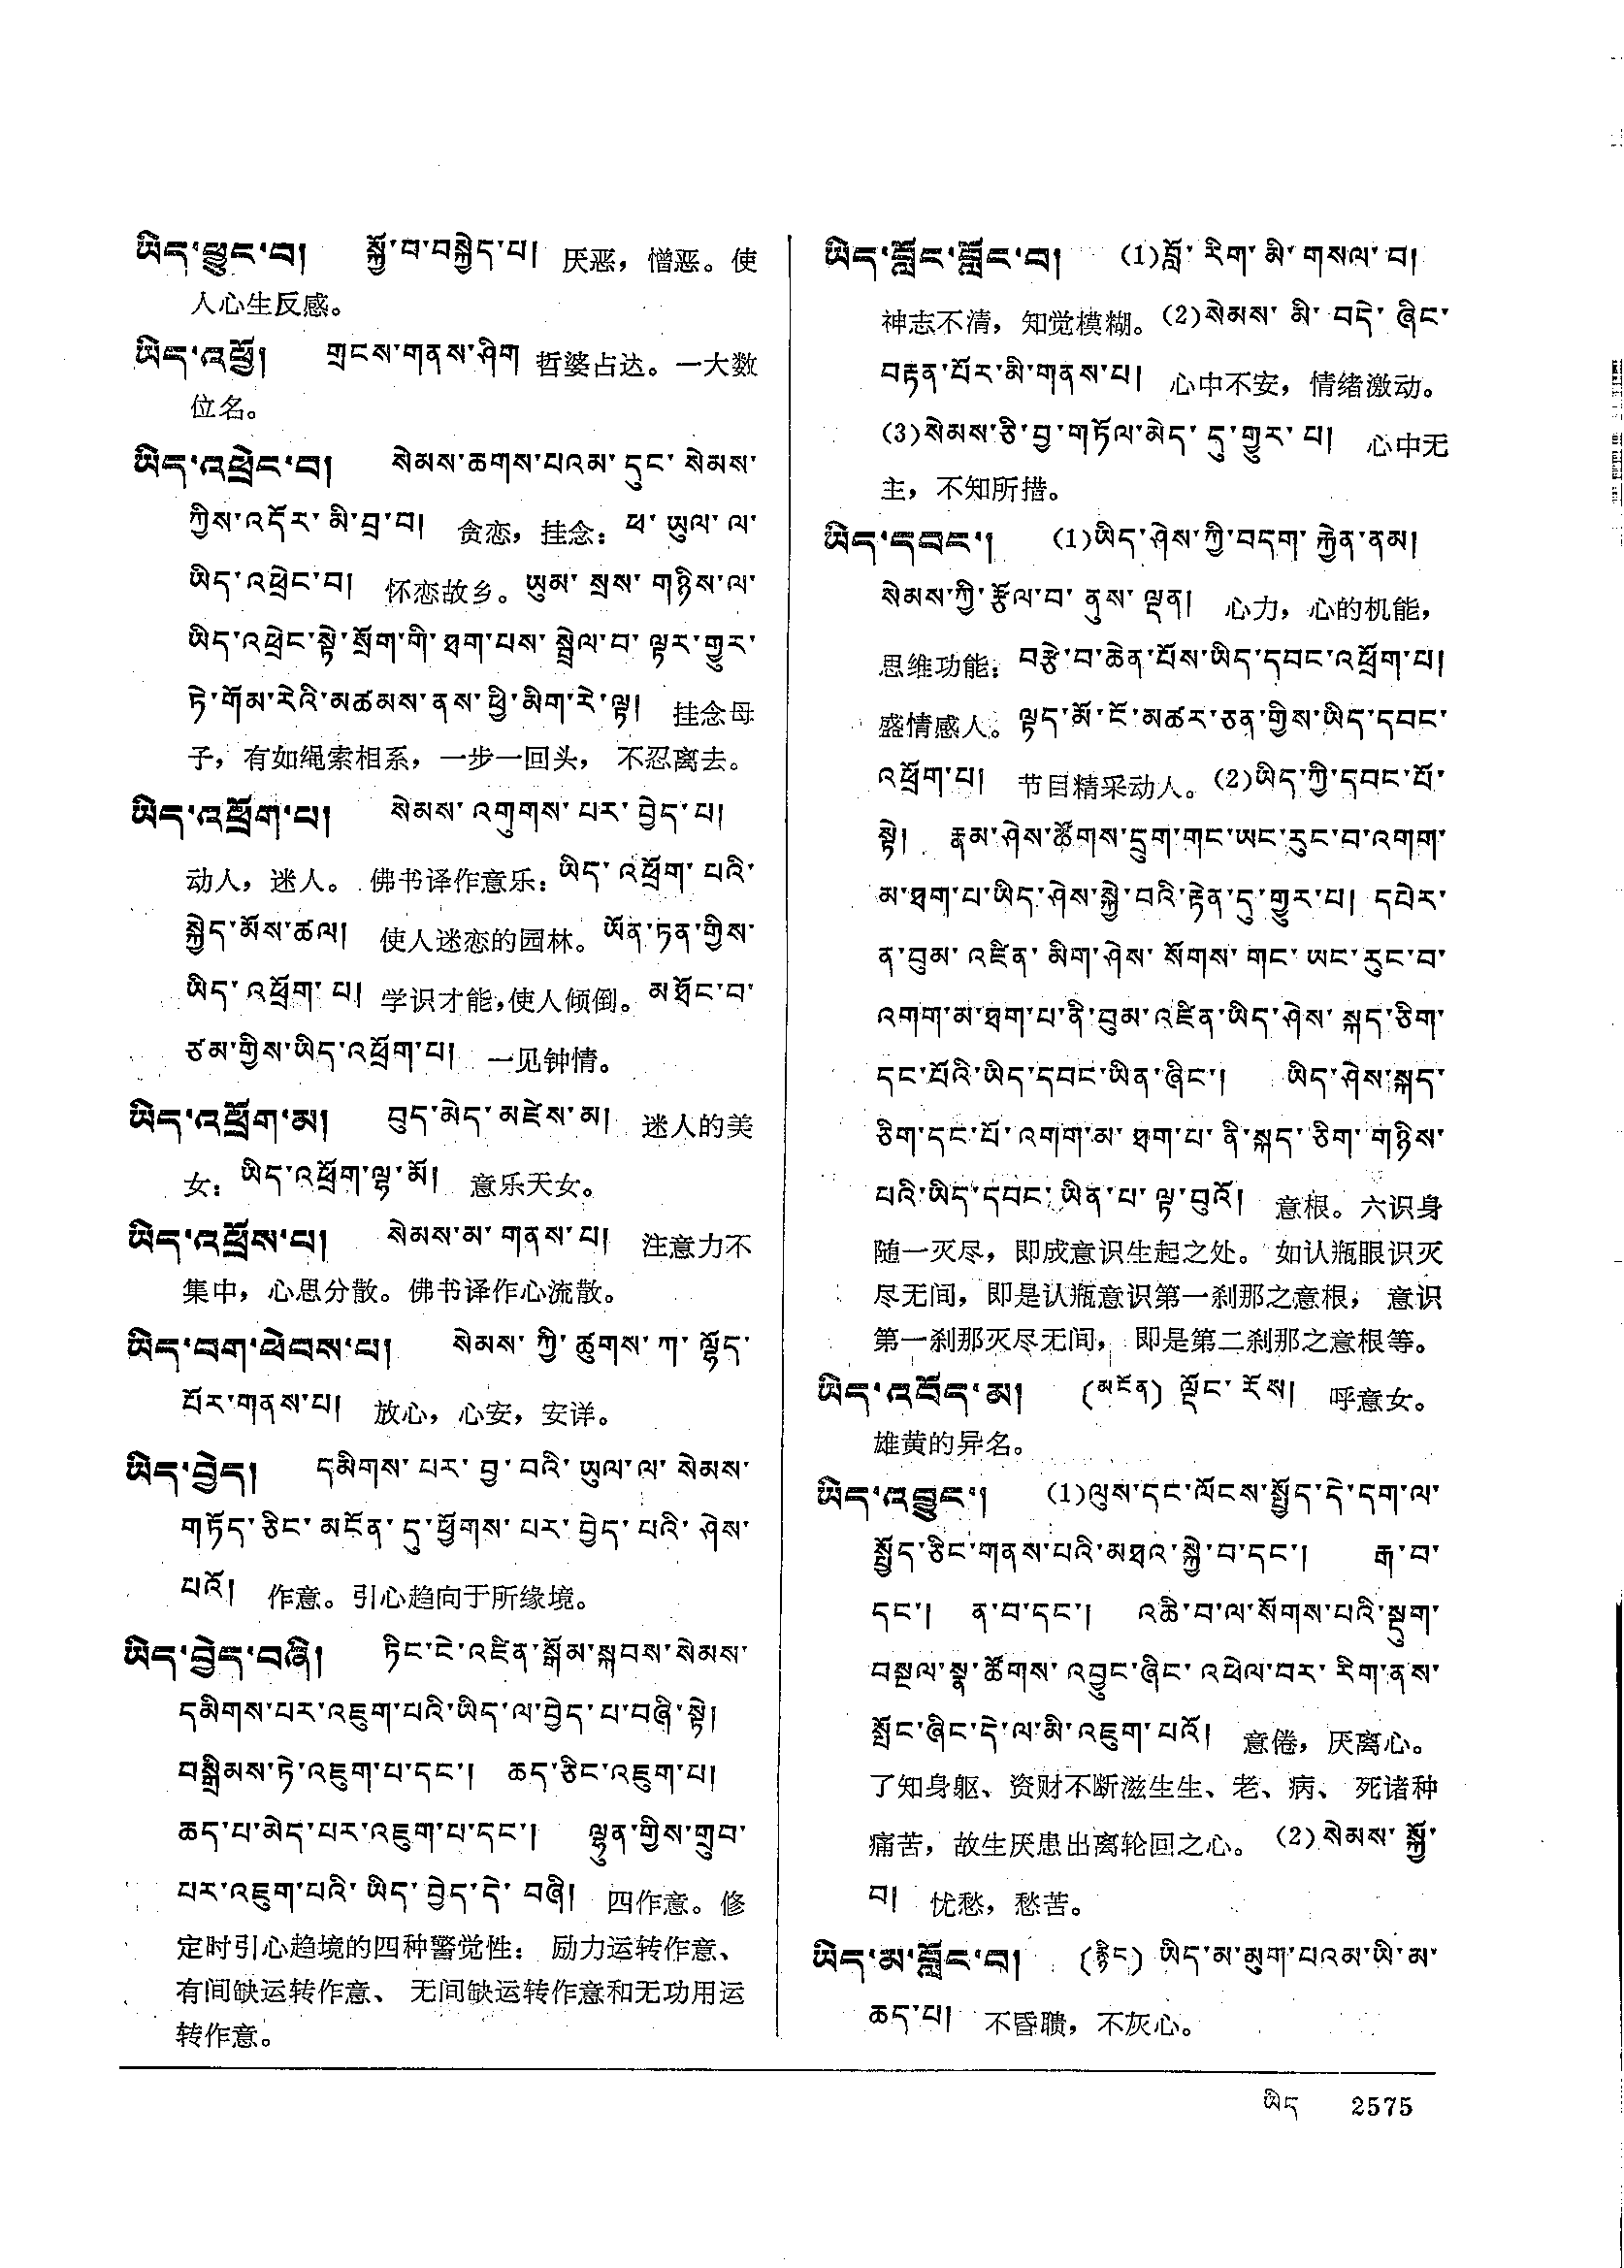 ཡིད་ཕྱུང་བ། སྐྱོ་བ་བསྐྱེད་པ། 厌恶，憎恶。使
人心生反感。
ཡིད་འཕྱོ། གྲངས་གནས་ཤིག 哲婆占达。一大数
位名。
ཡིད་འཕྲེང་བ། སེམས་ཆགས་པའམ་དུང་སེམས་
ཀྱིས་འདོར་མི་བྲ་བ། 贪恋，挂念：ཕ་ཡུལ་ལ་
ཡིད་འཕྲེང་བ། 怀恋故乡。ཡུམ་སྲས་གཉིས་ལ་
ཡིད་འཕྲེང་སྟེ་སྲོག་གི་ཐག་པས་སྦྲེལ་བ་ལྟར་གྱུར་
ཏེ་གོམ་རེའི་མཚམས་ནས་ཕྱི་མིག་རེ་ལྟ། 挂念母
子，有如绳索相系，一步一回头，不忍离去。
ཡིད་འཕྲོག་པ། སེམས་འགུགས་པར་བྱེད་པ།
动人，迷人。佛书译作意乐：ཡིད་འཕྲོག་པའི་
སྐྱེད་མོས་ཚལ། 使人迷恋的园林。ཡོན་ཏན་གྱིས་
ཡིད་འཕྲོག་པ། 学识才能，使人倾倒。མཐོང་བ་
ཙམ་གྱིས་ཡིད་འཕྲོག་པ། 一见钟情。
ཡིད་འཕྲོག་མ། བུད་མེད་མཛེས་མ། 迷人的美
女：ཡིད་འཕྲོག་ལྷ་མོ། 意乐天女。
ཡིད་འཕྲོས་པ། སེམས་མ་གནས་པ། 注意力不
集中，心思分散。佛书译作心流散。
ཡིད་བག་ཕེབས་པ། སེམས་ཀྱི་ཚུགས་ཀ་ལྷོད་
པོར་གནས་པ། 放心，心安，安详。
ཡིད་བྱེད། དམིགས་པར་བྱ་བའི་ཡུལ་ལ་སེམས་
གཏོད་ཅིང་མངོན་དུ་ཕྱོགས་པར་བྱེད་པའི་ཤེས་
པའོ། 作意。引心趋向于所缘境。
ཡིད་བྱེད་བཞི། ཏིང་ངེ་འཛིན་སྒོམ་སྐབས་སེམས་
དམིགས་པར་འཇུག་པའི་ཡིད་ལ་བྱེད་པ་བཞི་སྟེ།
བསྒྲིམས་ཏེ་འཇུག་པ་དང་། ཆད་ཅིང་འཇུག་པ།
ཆད་པ་མེད་པར་འཇུག་པ་དང་། ལྷུན་གྱིས་གྲུབ་
པར་འཇུག་པའི་ཡིད་བྱེད་དེ་བཞི། 四作意。修
定时引心趋境的四种警觉性：励力运转作意、
有间缺运转作意、无间缺运转作意和无功用运
转作意。
ཡིད་བློང་བློང་བ། (1)བློ་རིག་མི་གསལ་བ།
神志不清，知觉模糊。(2)སེམས་མི་བདེ་ཞིང་
བརྟན་པོར་མི་གནས་པ། 心中不安，情绪激动。
(3)སེམས་ཅི་བྱ་གཏོལ་མེད་དུ་གྱུར་པ། 心中无
主，不知所措。
ཡིད་དབང་། (1)ཡིད་ཤེས་ཀྱི་བདག་རྐྱེན་ནམ།
སེམས་ཀྱི་རྩོལ་བ་ནུས་ལྡན། 心力，心的机能，
思维功能：བརྩེ་བ་ཆེན་པོས་ཡིད་དབང་འཕྲོག་པ།
盛情感人。ལྟད་མོ་ངོ་མཚར་ཅན་གྱིས་ཡིད་དབང་
འཕྲོག་པ། 节目精采动人。(2)ཡིད་ཀྱི་དབང་པོ་
སྟེ། རྣམ་ཤེས་ཚོགས་དྲུག་གང་ཡང་རུང་བ་འགག་
མ་ཐག་པ་ཡིད་ཤེས་སྐྱེ་བའི་རྟེན་དུ་གྱུར་པ། དཔེར་
ན་བུམ་འཛིན་མིག་ཤེས་སོགས་གང་ཡང་རུང་བ་
འགག་མ་ཐག་པ་ནི་བུམ་འཛིན་ཡིད་ཤེས་སྐད་ཅིག་
དང་པོའི་ཡིད་དབང་ཡིན་ཞིང་། ཡིད་ཤེས་སྐད་
ཅིག་དང་པོ་འགག་མ་ཐག་པ་ནི་སྐད་ཅིག་གཉིས་
པའི་ཡིད་དབང་ཡིན་པ་ལྟ་བུའོ། 意根。六识身
随一灭尽，即成意识生起之处。如认瓶眼识灭
尽无间，即是认瓶意识第一刹那之意根，意识
第一刹那灭尽无间，即是第二刹那之意根等。
ཡིད་འབོད་མ། (མངོན) ལྡོང་རོས། 呼意女。
雄黄的异名。
ཡིད་འབྱུང་། (1)ལུས་དང་ལོངས་སྤྱོད་དེ་དག་ལ་
སྤྱོད་ཅིང་གནས་པའི་མཐའ་སྐྱེ་བ་དང་། རྒ་བ་
དང་། ན་བ་དང་། འཆི་བ་ལ་སོགས་པའི་སྡུག་
བསྔལ་སྣ་ཚོགས་འབྱུང་ཞིང་འཕེལ་བར་རིག་ནས་
སྤོང་ཞིང་དེ་ལ་མི་འཇུག་པའོ། 意倦，厌离心。
了知身躯、资财不断滋生生、老、病、死诸种
痛苦，故生厌患出离轮回之心。(2)སེམས་སྐྱོ་
བ། 忧愁，愁苦。
ཡིད་མ་བློང་བ། (རྙིང) ཡིད་མ་མུག་པའམ་ཡི་མ་
ཆད་པ། 不昏聩，不灰心。
ཡིད 2575